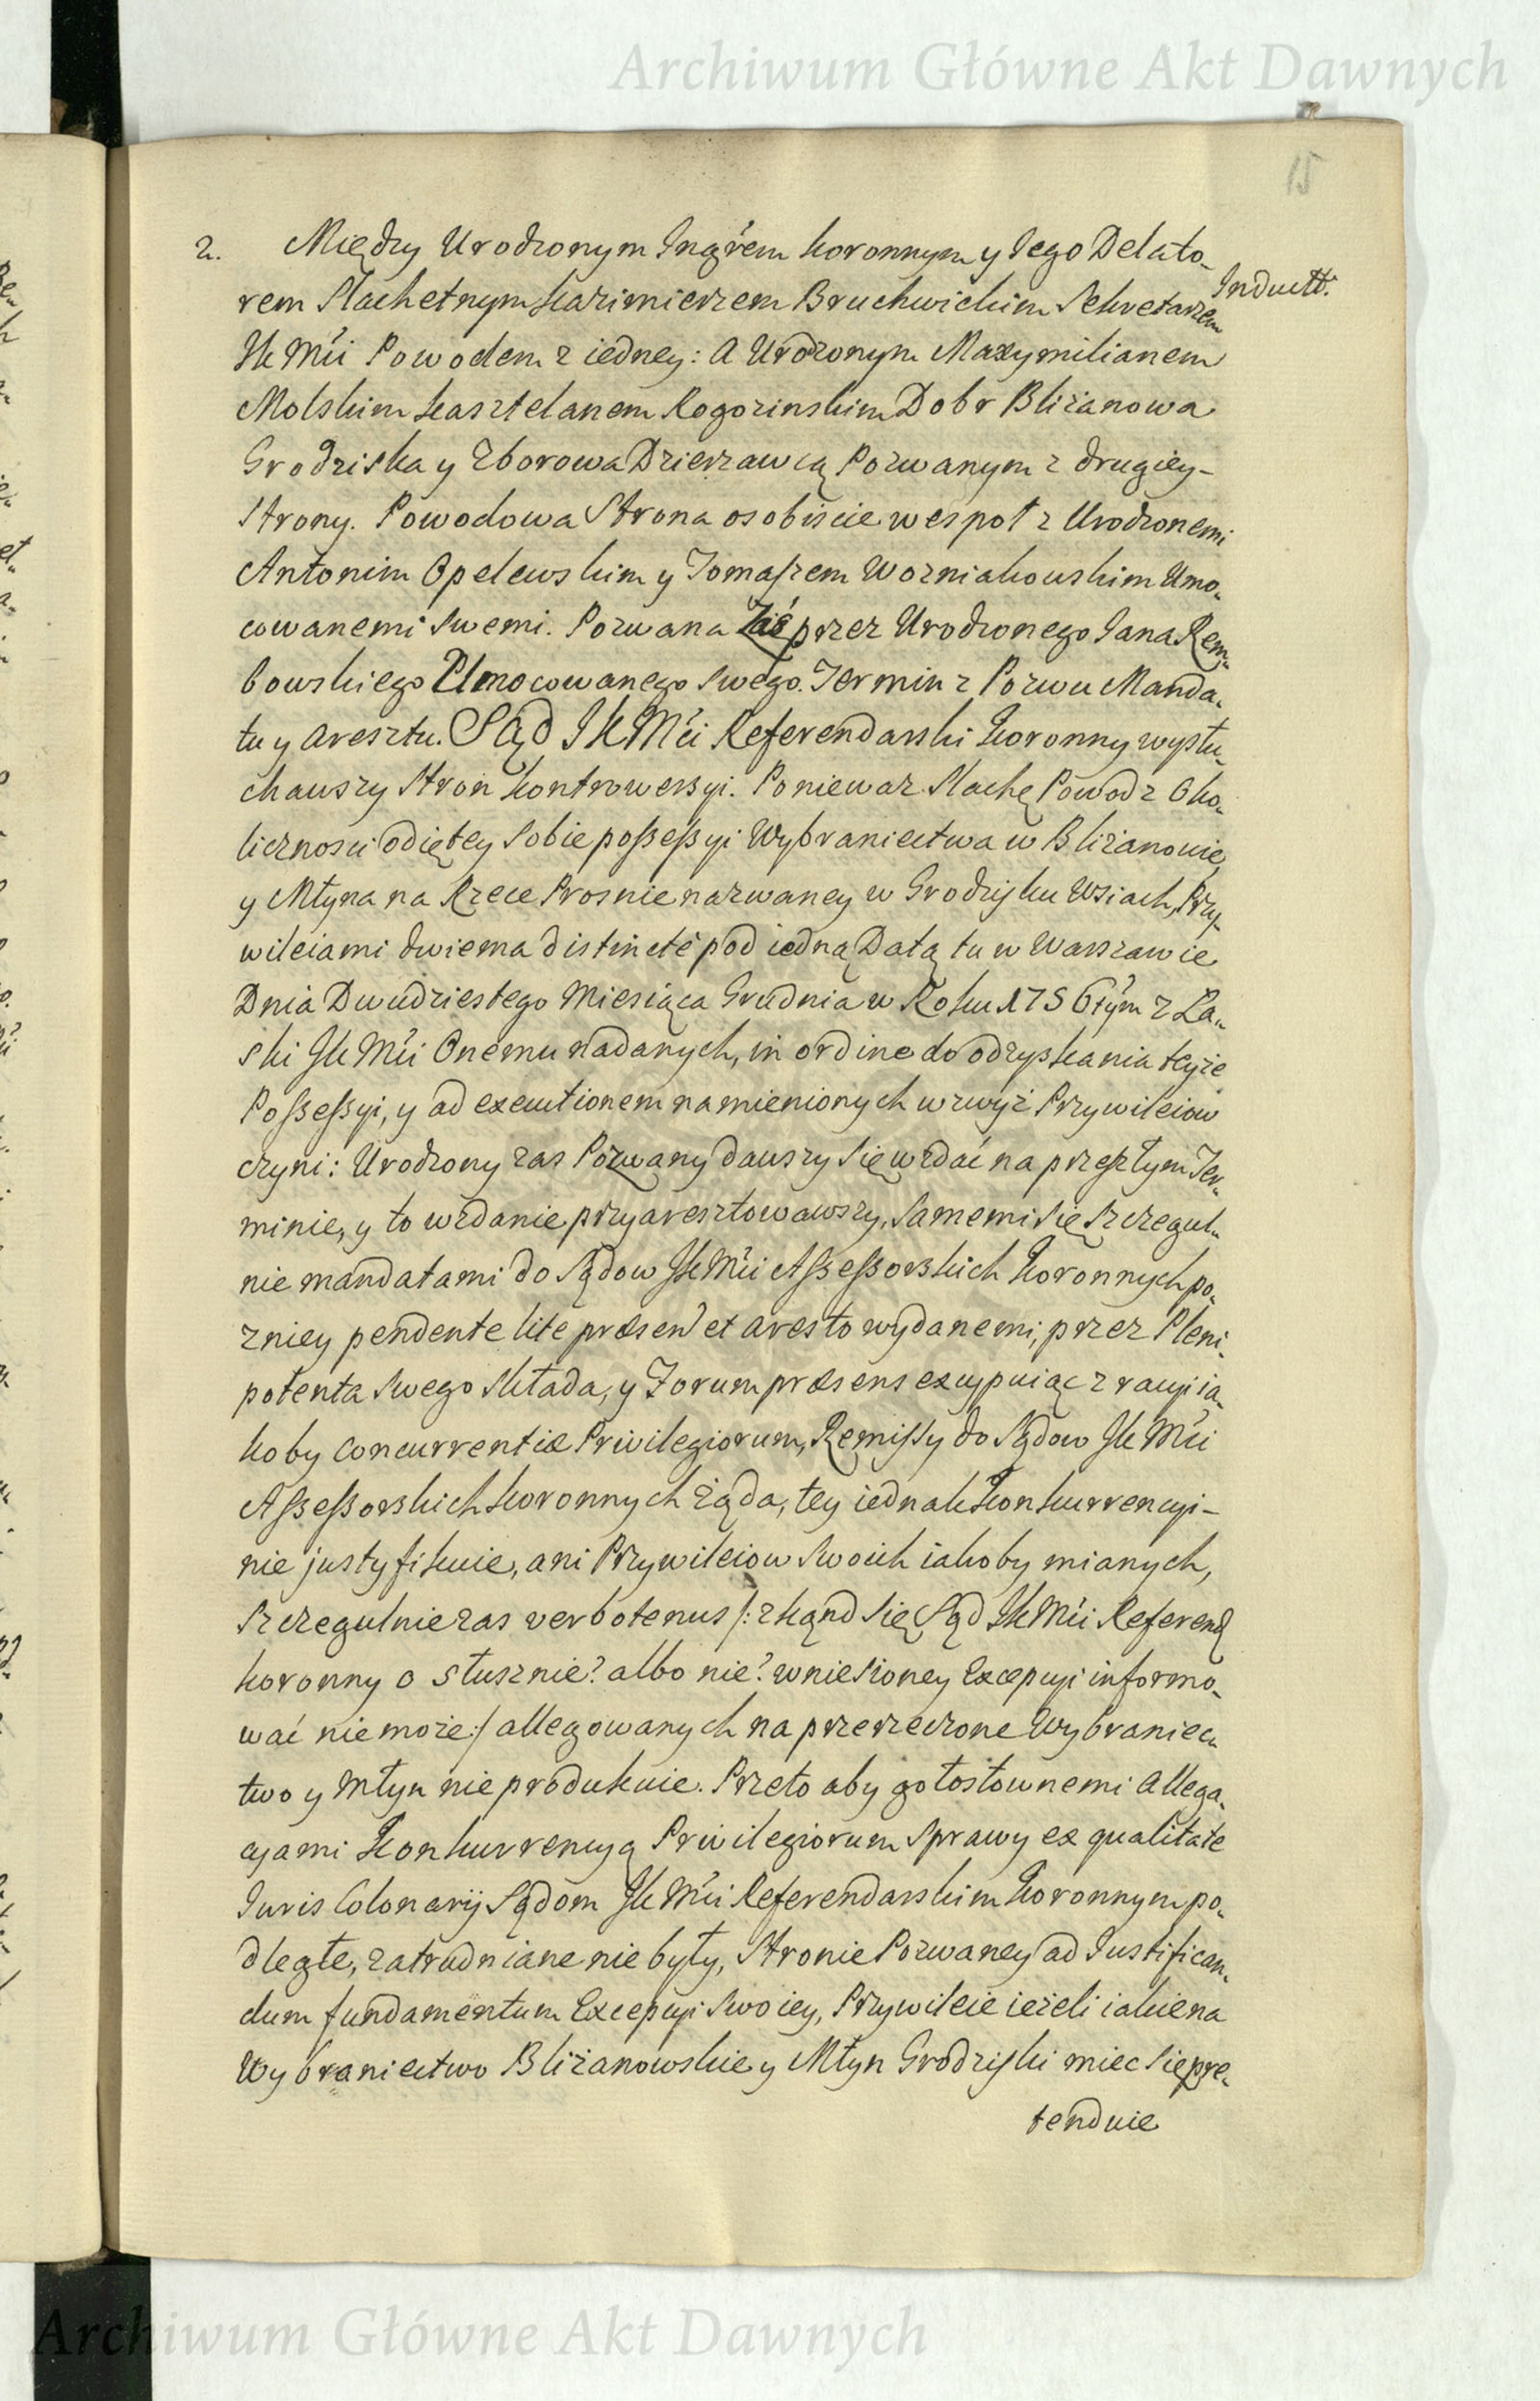 Archiwum Główne Akt Dawnych
15
2. Między Urodzonym Ingrem koronnym y Jego Delato-
Induktt.
rem Slachetnym Kazimierzem Bruchwickim Sekretarzem
JK Mći Powodem z iedney: a Urodzonym Maxymilianem
Molskim kasztelanem Rogozinskim Dobr Bliżanowa
Grodziska y Zborowa Dzierzawcą Pozwanym z drugiey-
strony. Powodowa Strona osobiscie wespoł z Urodzonemi
Antonim Opelewskim y Tomaszem Wozniakowskim Umo-
cowanemi swemi. Pozwana zaś przez Urodzonego Jana Rem-
bowskiego Umocowanego swego. Termin z Pozwu Manda-
tu y Aresztu. Sąd JK Mći Referendarski Koronny wysłu-
chawszy stron kontrowersyi. Poniewaz Slachę Powod z Oko-
licznosci odiętey sobie possessyi Wybraniectwa w Bliżanowie
y Młyna na Rzece Prosnie nazwaney w Grodzisku Wsiach, Przy-
wileiami dwiema distincte pod iedną Datą tu w Warszawie
Dnia Dwudziestego Miesiąca Grudnia w Roku 1756tym z Ła-
ski JK Mći Onemu nadanych, in ordine do odzyskania teyże
Possessyi, y ad executionem namienionych wzwyż Przywileiow
czyni: Urodzony zas Pozwany dawszy się wzdać na przeszłym Ter-
minie, y to wzdanie przyaresztowawszy, samemi się szczegul-
nie mandatami do Sądow JK Mći Assessorskich Koronnych po-
zniey pendente lite præsen et aresto wydanemi, przez Pleni-
potenta swego składa, y Forum præsens excypuiąc z racyi ia-
koby concurrentiæ Privilegiorum, Remissy do Sądow JK Mći
Assessorskich koronnych żąda, tey iednak Konkurrencyi-
nie justyfikuie, ani Przywileiow swoich iakoby mianych,
szczegulnie zas verbotenus /: zkąnd się Sąd JK Mći Referend
koronny o słusznie? albo nie? wniesioney Excepcyi informo-
wać nie może :/ allegowanych na przerzeczone Wybraniec-
two y Młyn nie produkuie. Przeto aby gołosłownemi Allega-
cyami Konkurrencyą Privilegiorum sprawy ex qualitate
Juris Colonarij Sądom JK Mći Referendarskim Koronnym po-
dległe, zatrudniane nie były, Stronie Pozwaney ad Justifican-
dum fundamentum Excepcyi swoiey, Przywileie ieżeli iakie na
Wybraniectwo Bliżanowskie y Młyn Grodziski miec się pre-
tenduie
Archiwum Główne Akt Dawnych